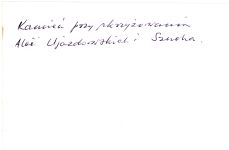 Kamień przy skrzyżowaniu
Aleí Ujazdowskich i Szucha.